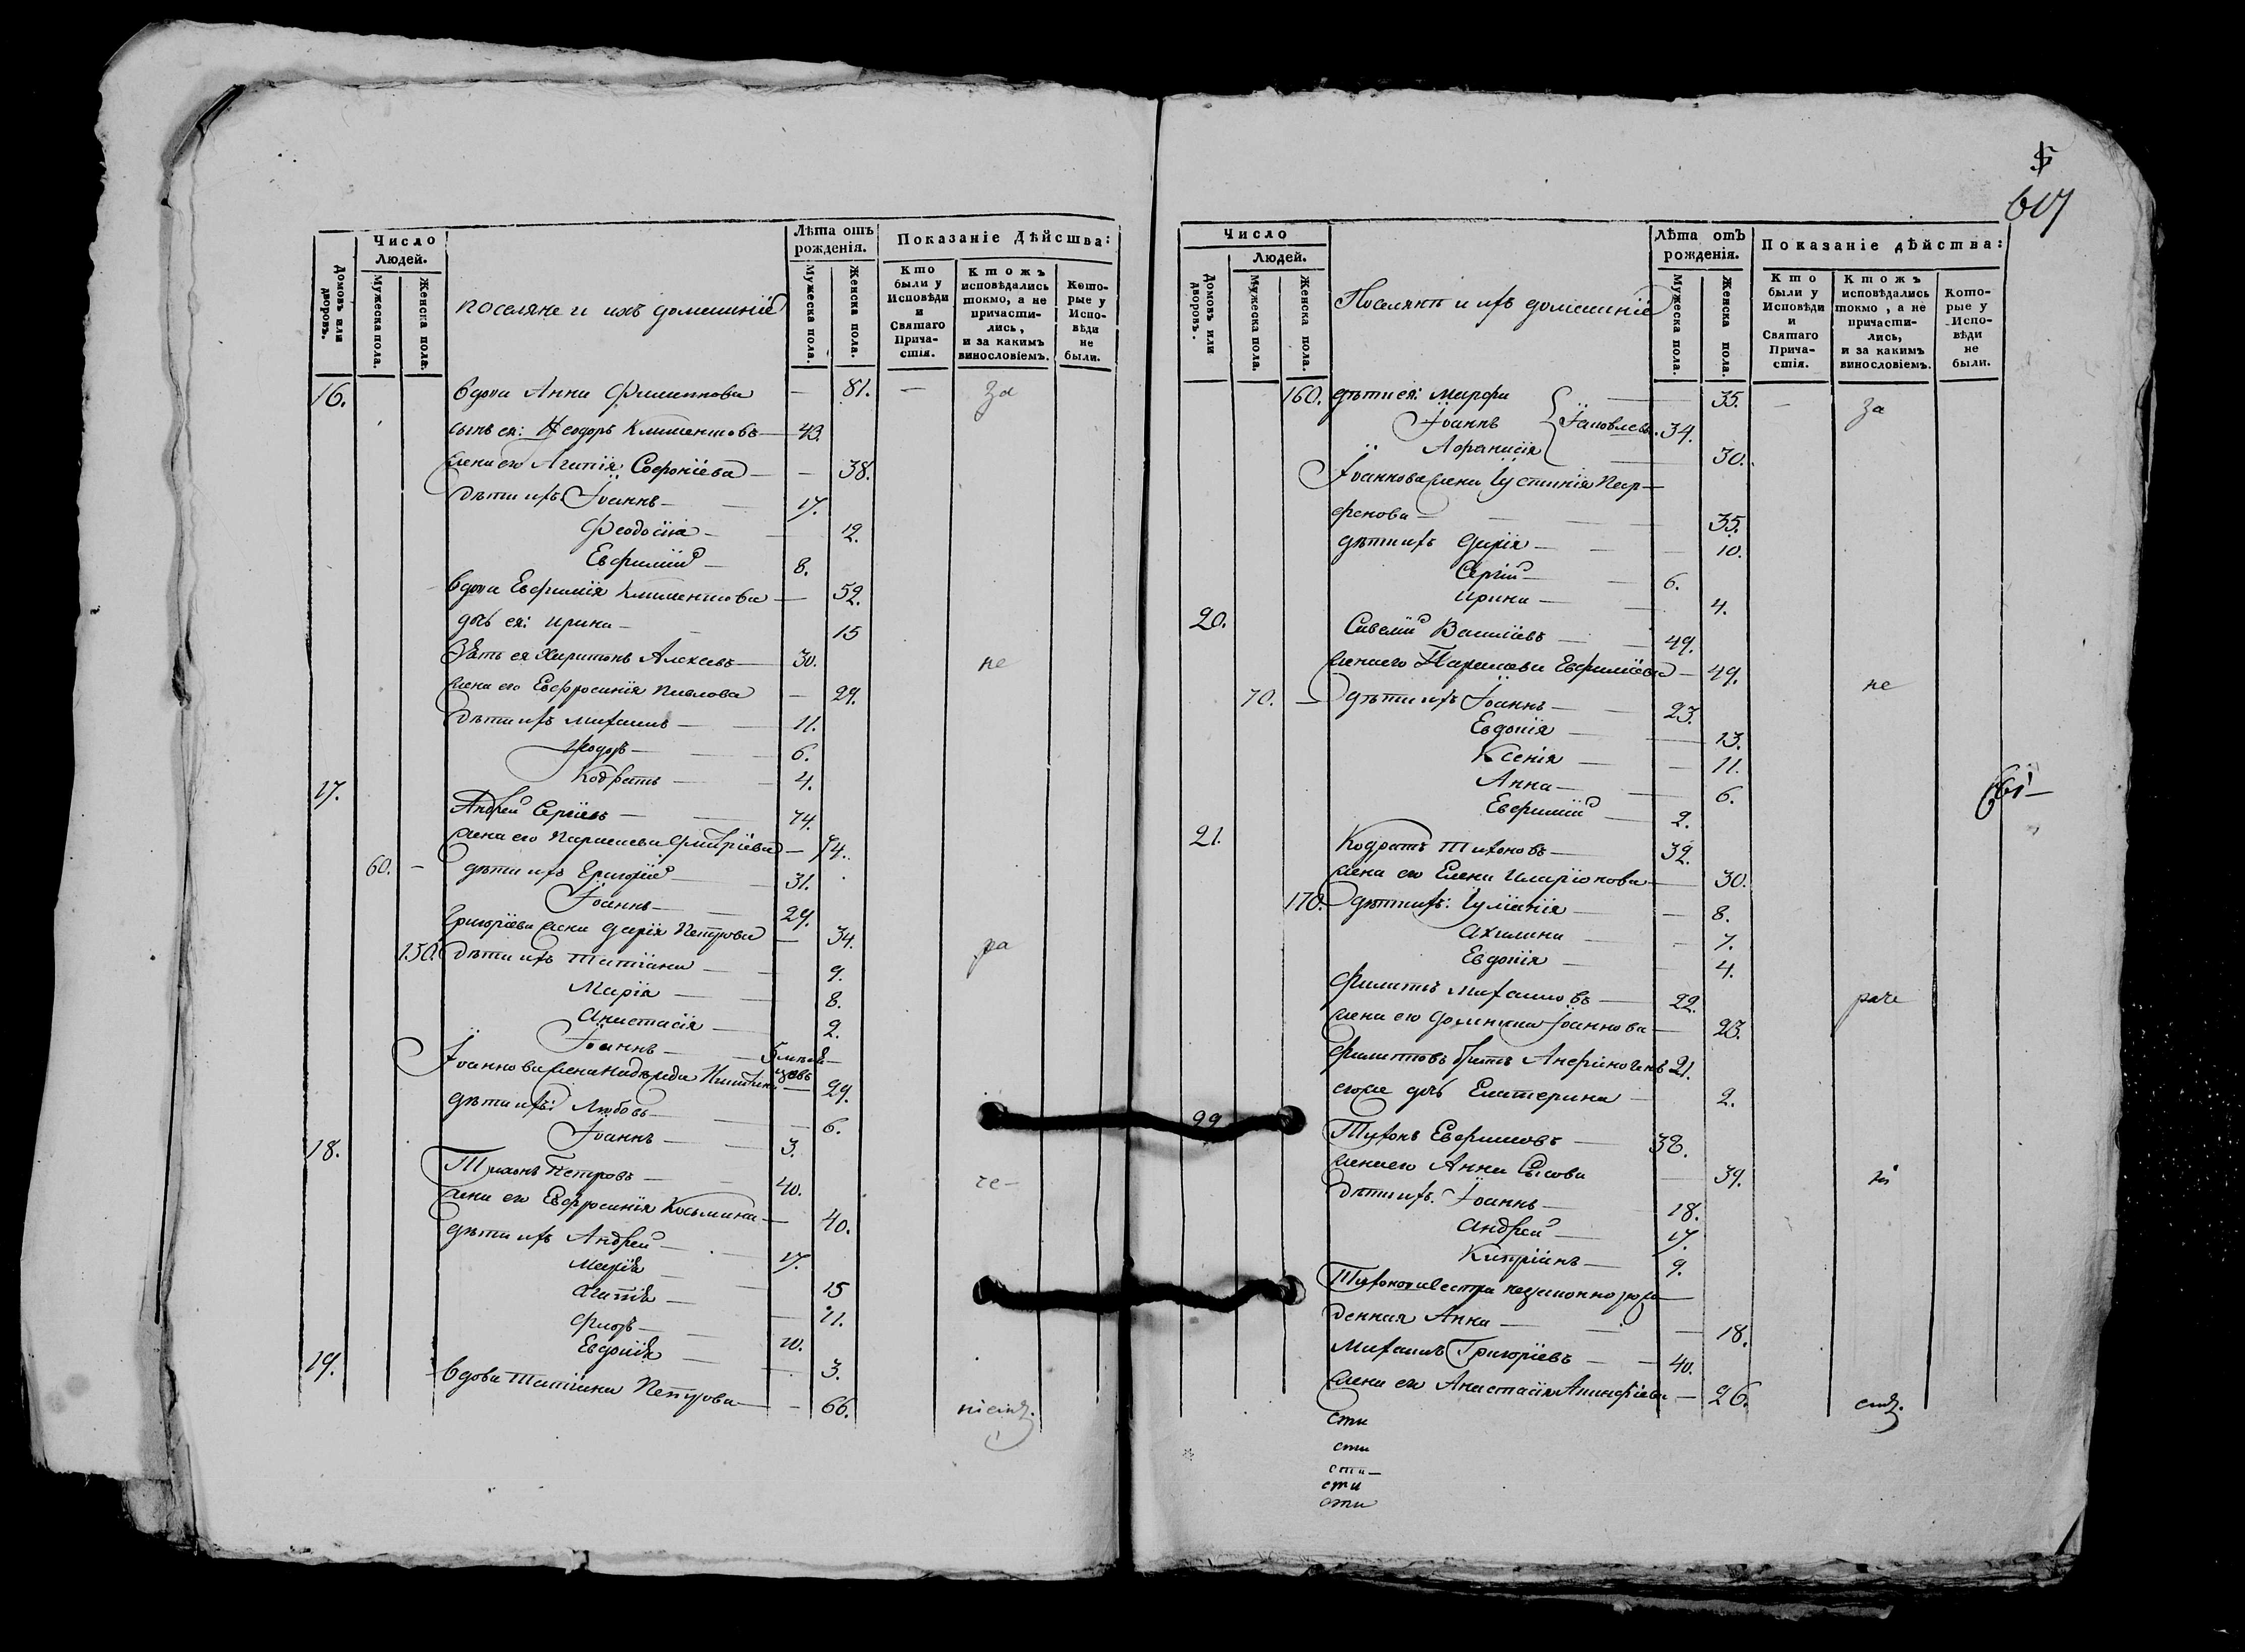 Число
Людей.
Домовъ или дворовъ.
Мужеска пола.
Женска пола.
поселяне и ихъ домашніе
Лѣта отъ рожденія.
Мужеска пола.
Женска пола.
Показаніе Дѣйства:
Кто были у Исповѣди и Святаго Прича-стія.
Ктожъ исповѣдались токмо, а не причасти-лись, и за какимъ винословіемъ.
Кото-рые у Испо-вѣди не были.
16. вдова Анна Филиппова — 81. — за
сынъ ея: Ѳеодоръ Климентовъ — 43.
жена его Агапія Софроніева — — 38.
дѣти ихъ Іоаннъ — 17.
Феодосіа — 12.
Евфимій — 8.
вдова Евфимія Климентова — 52.
дочь ея: Ирина — 15
Зять ея Харитонъ Алексѣевъ — 30. не
жена его Евфросинія Павлова — 29.
дѣти ихъ Михаилъ — 11.
Ѳеодоръ — 6.
Кодратъ — 4.
17. Андрей Сергіевъ — 74.
жена его Параскева Дмитріева — 74.
60. — дѣти ихъ Григорій — 31.
Іоаннъ — 29.
Григоріева жена Дарія Петрова — 34. ра
150. дѣти ихъ Татіана — 9.
Марія — 8.
Анастасія — 2.
Іоаннъ — 5 мѣсяцовъ
Іоаннова жена Надежда — 29.
дѣти ихъ: Любовь — 6.
Іоаннъ — 3.
18. Петровъ — 40. че—
жена его Евфросинія Космина — 40.
дѣти ихъ Андрей — 17.
Марія — 15
Агапія — 11.
Флоръ — 10.
Евдокія — 3.
19. вдова Татіана Петрова — — 66.
617
Число
Людей.
Домовъ или дворовъ.
Мужеска пола.
Женска пола.
Поселянѣ и ихъ домашніе
Лѣта отъ рожденія.
Мужеска пола.
Женска пола.
Показаніе дѣйства:
Кто были у Исповѣди и Святаго Прича-стія.
Ктожъ исповѣдались токмо, а не причасти-лись, и за какимъ винословіемъ.
Кото-рые у Испо-вѣди не были.
160. дѣти ея: Марфа — 35. — за
Іоаннъ Іаковлевы. 34.
Афанасія 30.
Іоаннова жена Іустинія Пар-
фенова — 35.
дѣти ихъ Дарія — 10.
Сергій — 6.
Ирина — 4.
20. Савелій Василіевъ — 49.
жена его Параскева Евфиміева — 49. не
70. — дѣти ихъ Іоаннъ — 23.
Евдокія — 13.
Ксенія — 11.
Анна — 6.
Евфимій — 2.
21. Кодратъ Тихоновъ — 32.
жена его Елена Иларіонова — 30.
170. дѣти ихъ: Іуліанія — 8.
Акилина — 7.
Евдокія — 4.
Филиппъ Михаиловъ — 22. раче
жена его Домникіа Іоаннова — 23.
Филипповъ братъ 21.
дочь Екатерина — 2.
22. Тихонъ Евфимовъ — 38.
жена его Анна Сысова 39.
дѣти ихъ. Іоаннъ — 18.
Андрей — 17.
Кипріанъ — 9.
Тихонова сестра незаконно рож—
денная Анна — 18.
Михаилъ Григоріевъ — 40.
жена его Анастасія — 26.
сти
сти
сти—
сти
сти